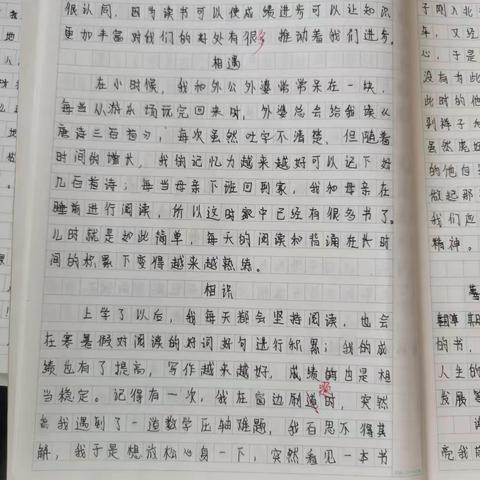 很认同，因为读书可以使成绩进步可以让知识
更加丰富对我们的好处有很多推动着我们进步。
相遇
在小时候，我和外公外婆常常呆在一块，
每当从游乐场玩完回来时，外婆总会给我读《
唐诗三百首》，每次虽然吐字不清楚，但随着
时间的增长，我的记忆力越来越好可以记下好
几百首诗；每当母亲下班回到家，我和母亲在
睡前进行阅读，所以这时家中已经有很多书了。
儿时就是如此简单，每天的阅读和背诵在长时
间的积累下变得越来越熟练。
相识
上学了以后，我每天都会坚持阅读，也会
在寒暑假对阅读的好词好句进行积累；我的成
绩也有了提高，写作越来越好，成绩的也是相
当稳定。记得有一次，我在窗边刷道时，突然
我遇到了一道数学压轴难题，我百思不得其
解，我于是想放松心身一下，突然看见一本书
子刚入北
车，又经
心，于是
没有为此
此时的他
别样子
虽然
的他自
做起那
我们应
精神。
的书，
人生的
发展
亮我